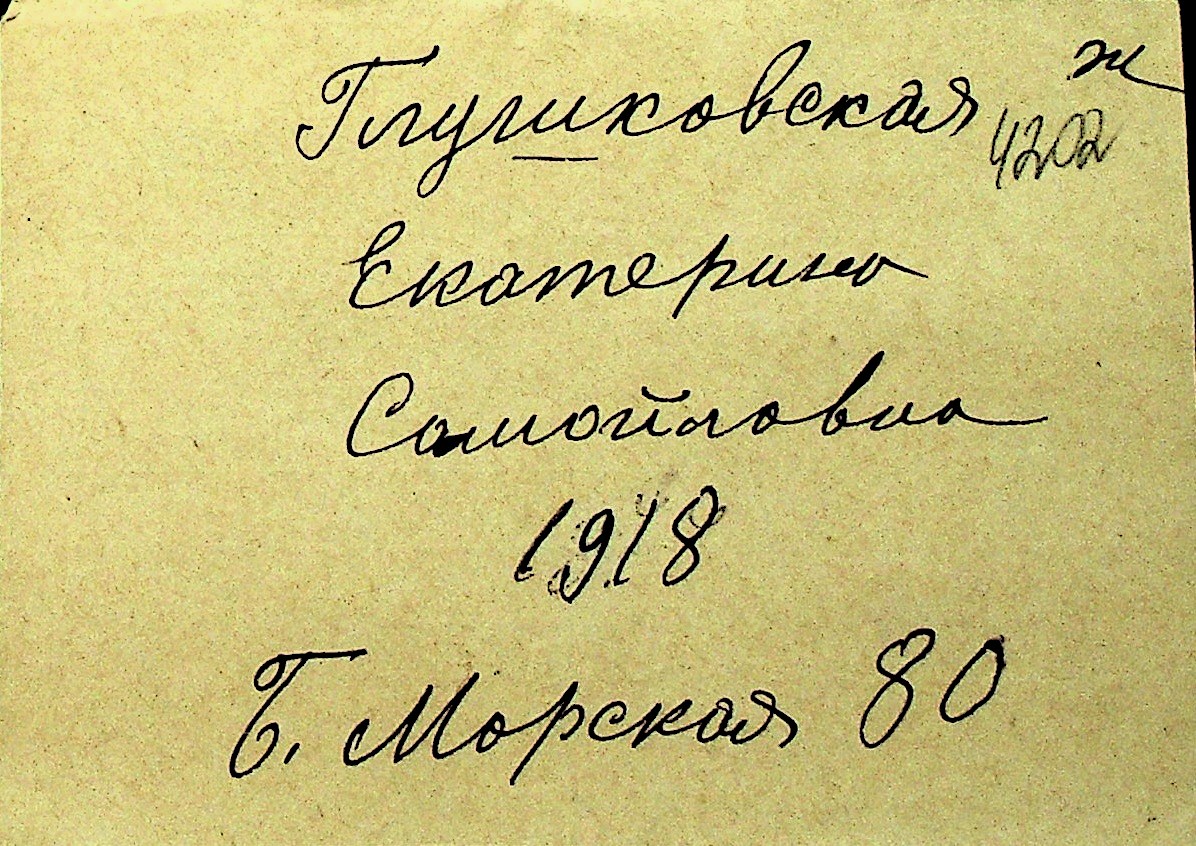 Глушковская ж
4202
Екатерина
Самойловна
1918
Б. Морская 80